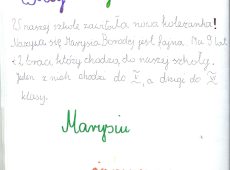 W naszej szkole zawitała nowa koleżanka!
Nazywa się Marysia Borodej jest fajna Ma 9 lat
i 2 braci, którzy chodzą do naszej szkoły.
Jeden z nich chodzi do I, a drugi do
klasy.
Marysiu